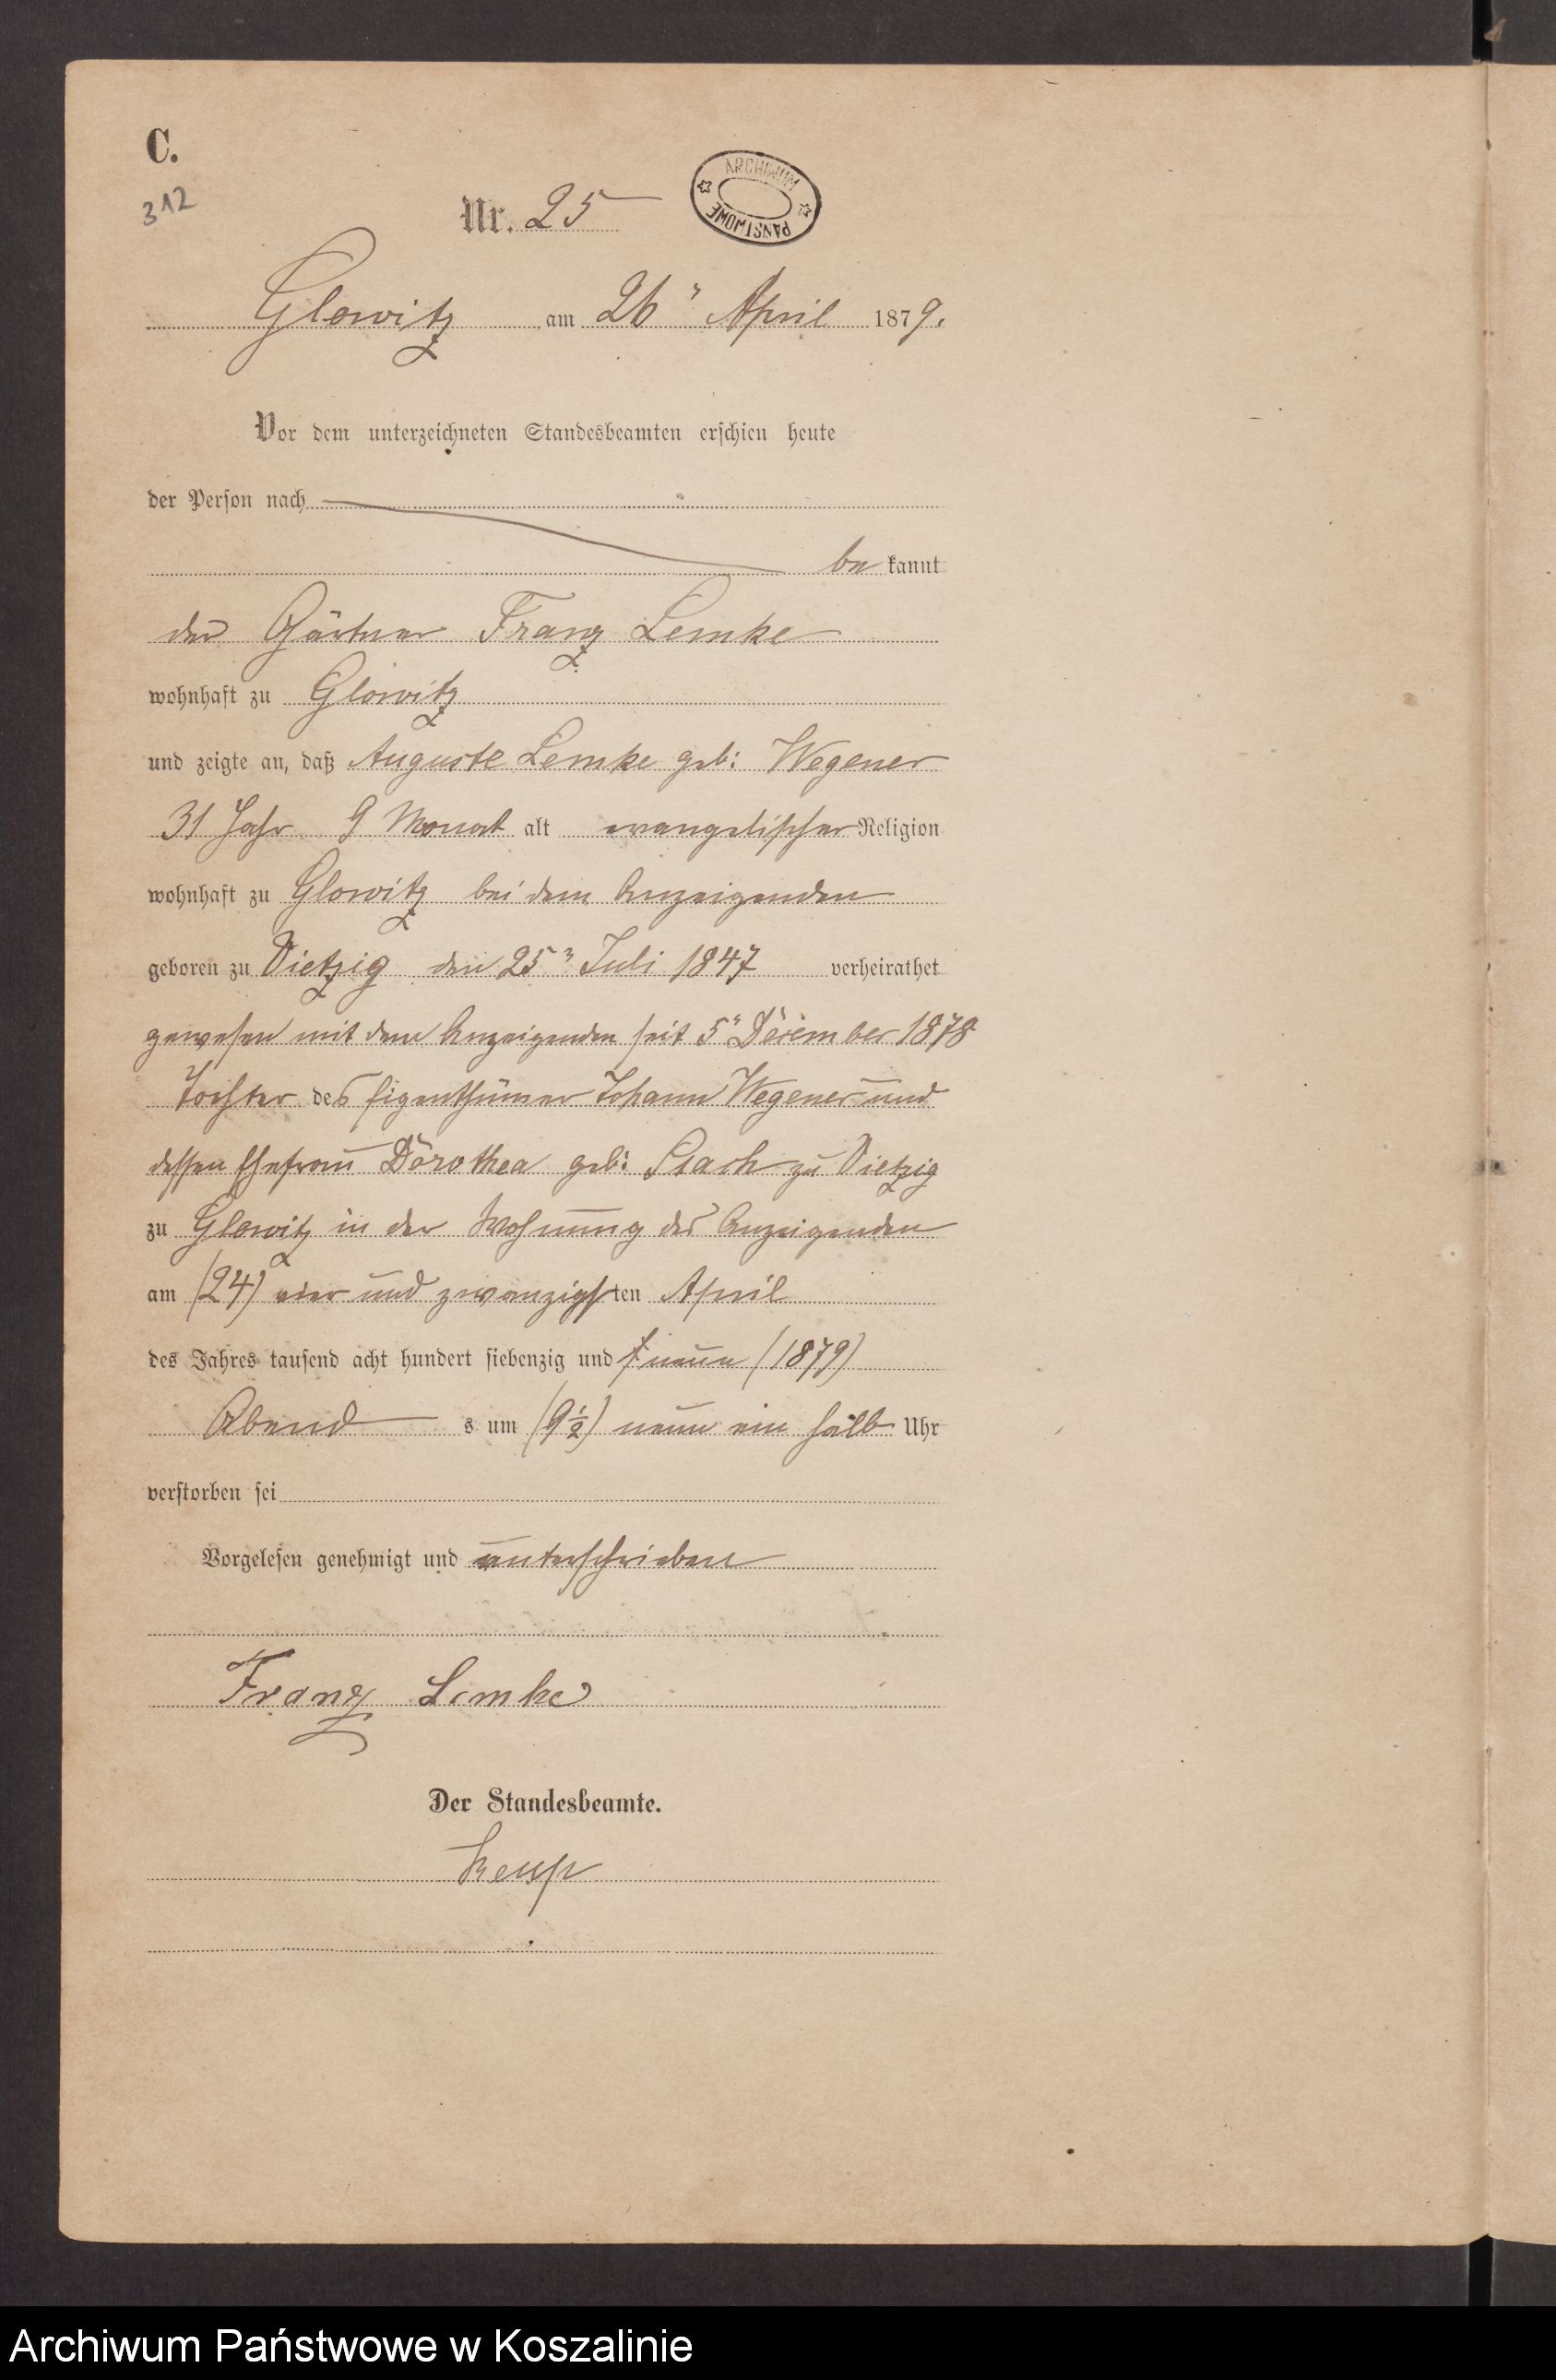 C.
312
Nr. 25
ARCHIWUM PAŃSTWOWE
Glowitz am 26" April 1879.
Vor dem unterzeichneten Standesbeamten erschien heute
der Person nach
bekannt
der Gärtner Franz Lemke
wohnhaft zu Glowitz
und zeigte an, daß Auguste Lemke geb: Wegener
31 Jahr 9 Monat alt evangelischer Religion
wohnhaft zu Glowitz bei dem Anzeigenden
geboren zu Vietzig den 25" Juli 1847 verheirathet
gewesen mit dem Anzeigenden seit 5" December 1878
Tochter des Eigenthümer Johann Wegener und
dessen Ehefrau Dorothea geb: zu Vietzig
zu Glowitz in der Wohnung des Anzeigenden
am (24) vier und zwanzigsten April
des Jahres tausend acht hundert siebenzig und neun (1879)
Abend s um (9½) neun ein halb Uhr
verstorben sei
Vorgelesen genehmigt und unterschrieben
Franz Lemke
Der Standesbeamte.
Archiwum Państwowe w Koszalinie